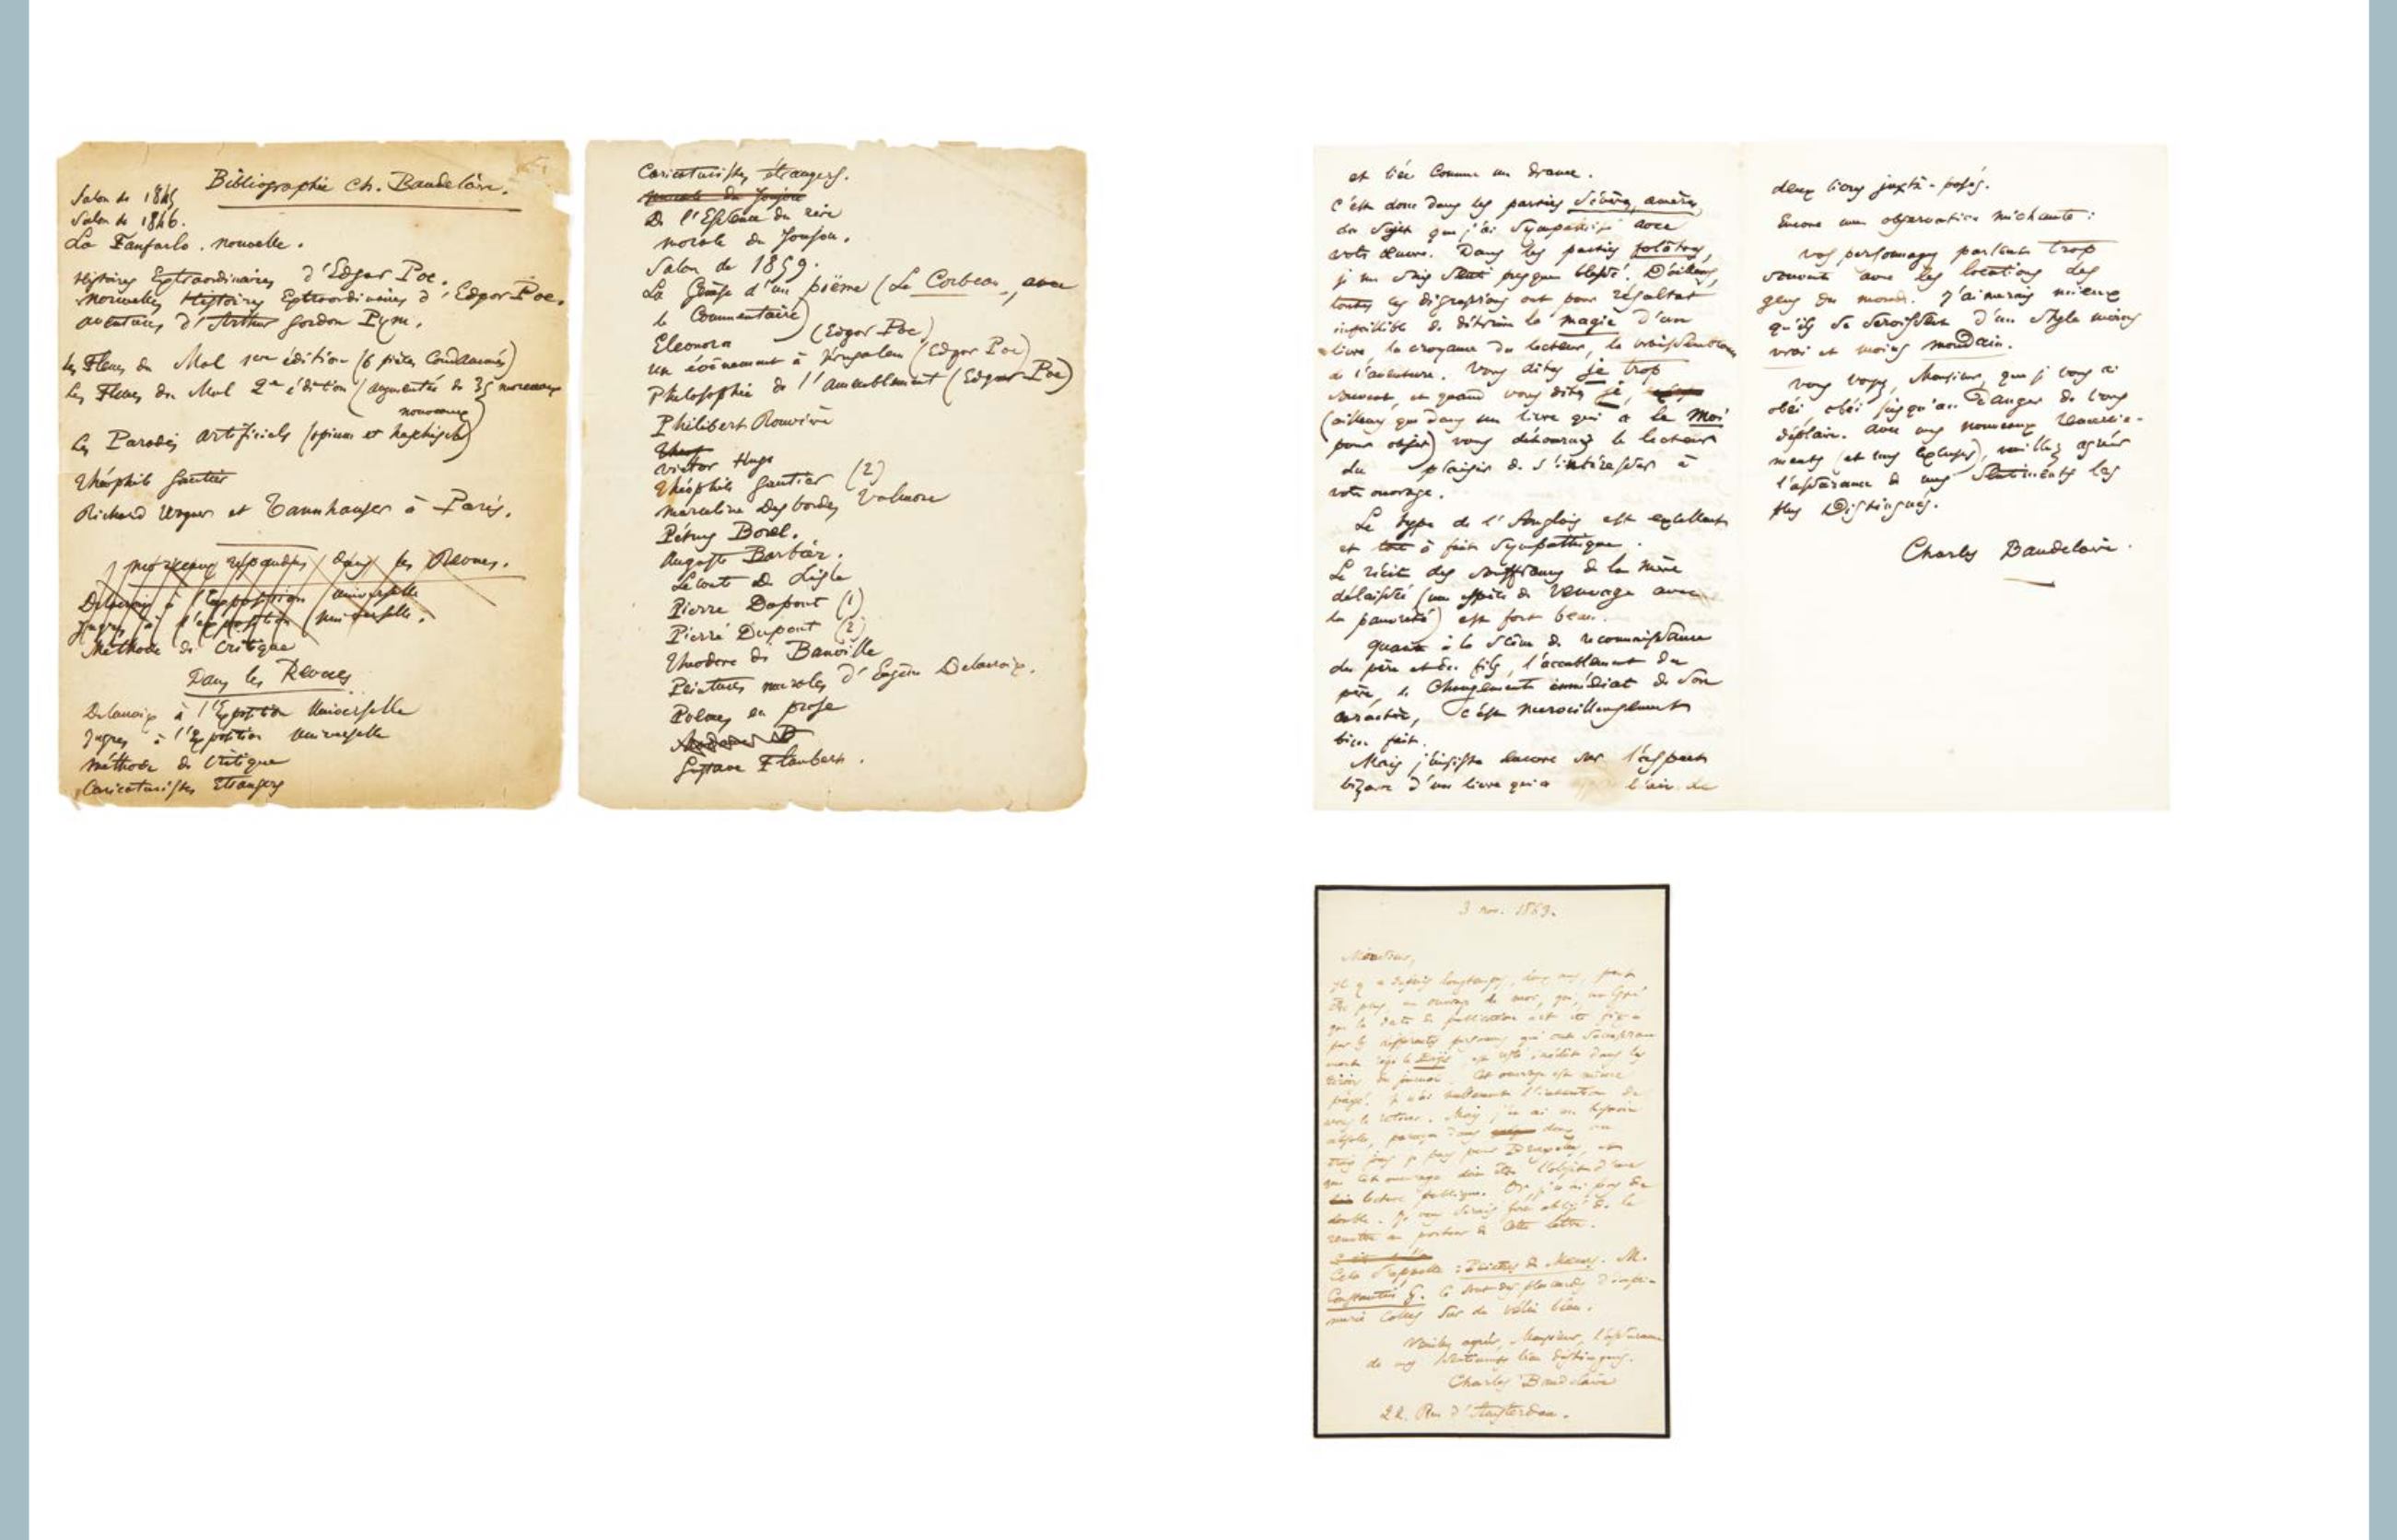 Bibliographie Ch. Baudelaire.
Salon de 1845
Salon de 1846.
La Fanfarlo. nouvelle.
Histoires Extraordinaires d'Edgar Poe.
Nouvelles Histoires Extraordinaires d'Edgar Poe.
aventures d'Arthur Gordon Pym.
Les Fleurs du Mal 1ère édition (6 pièces condamnées)
Les Fleurs du Mal 2e édition (augmentée de 35 morceaux
nouveaux)
Les Paradis artificiels (opium et haschisch)
Théophile Gautier
Richard Wagner et Tannhauser à Paris.
morceaux répandus dans les Revues.
Delacroix à l'Exposition universelle
Ingres à l'exposition universelle.
Méthode de Critique
Dans les Revues
Delacroix à l'Exposition Universelle
Ingres à l'Exposition Universelle
Méthode de Critique
Caricaturistes Etrangers
Caricaturistes étrangers.
morale du Joujou
De l'Essence du rire
morale du Joujou.
Salon de 1859.
La Genèse d'un poëme (Le Corbeau, avec
le Commentaire)
Eleonora (Edgar Poe)
un événement à Jérusalem (Edgar Poe)
Philosophie de l'ameublement (Edgar Poe)
Philibert Rouvière
Victor Hugo
Théophile Gautier (2)
Marceline Desbordes Valmore
Pétrus Borel.
Auguste Barbier.
Leconte de Lisle
Pierre Dupont (1)
Pierre Dupont (2)
Théodore de Banville
Peintures murales d'Eugène Delacroix.
Poëmes en prose
Gustave Flaubert.
et liée comme un drame.
C'est donc dans les parties sévères, amères,
du sujet que j'ai sympathisé avec
votre œuvre. Dans les parties folâtres,
je me suis senti presque blessé. D'ailleurs,
toutes les digressions ont pour résultat
infaillible de détruire la magie d'un
livre, la croyance du lecteur, la vraisemblance
de l'aventure. Vous dites je trop
souvent, et quand vous dites je,
(ailleurs que dans un livre qui a le Moi
pour objet) vous détournez le lecteur
du plaisir de s'intéresser à
votre ouvrage.
Le type de l'Anglais est excellent
et tout à fait sympathique.
Le récit des souffrances de la mère
délaissée (une espèce de veuvage avec
la pauvreté) est fort beau.
Quant à la scène de reconnaissance
du père et du fils, l'accablement du
père, le changement immédiat de son
caractère, c'est merveilleusement
bien fait.
Mais j'insiste encore sur l'aspect
bizarre d'un livre qui a l'air de
deux livres juxta-posés.
Encore une observation méchante :
vos personnages parlent trop
souvent avec les locutions des
gens du monde. J'aimerais mieux
qu'ils se servissent d'un style moins
vrai et moins mondain.
Vous voyez, Monsieur, que je vous ai
obéi, obéi jusqu'au danger de vous
déplaire. Avec mes nouveaux remercie-
ments (et mes excuses), veuillez agréer
l'assurance de mes sentiments les
plus distingués.
Charles Baudelaire.
3 nov. 1863.
Monsieur,
Il y a depuis longtemps, deux ans, peut
être plus, un ouvrage de moi, qui, malgré
que la date de publication ait été fixée
par les différentes personnes qui ont
est resté inédit dans les
tiroirs du journal. Cet ouvrage est même
payé. Je n'ai nullement l'intention de
vous le retirer. Mais j'en ai un besoin
absolu, parce que dans deux ou
trois jours je pars pour Bruxelles, où
cet ouvrage doit être l'objet d'une
lecture publique. Or, je n'ai pas de
double. Je vous serais fort obligé de le
remettre au porteur de cette lettre.
Cela s'appelle : Peintres de Mœurs. M.
Constantin G. Ce sont des placards d'impri-
merie collés sur du vélin bleu.
Veuillez agréer, Monsieur, l'assurance
de mes sentiments bien distingués.
Charles Baudelaire
22. Rue d'Amsterdam.